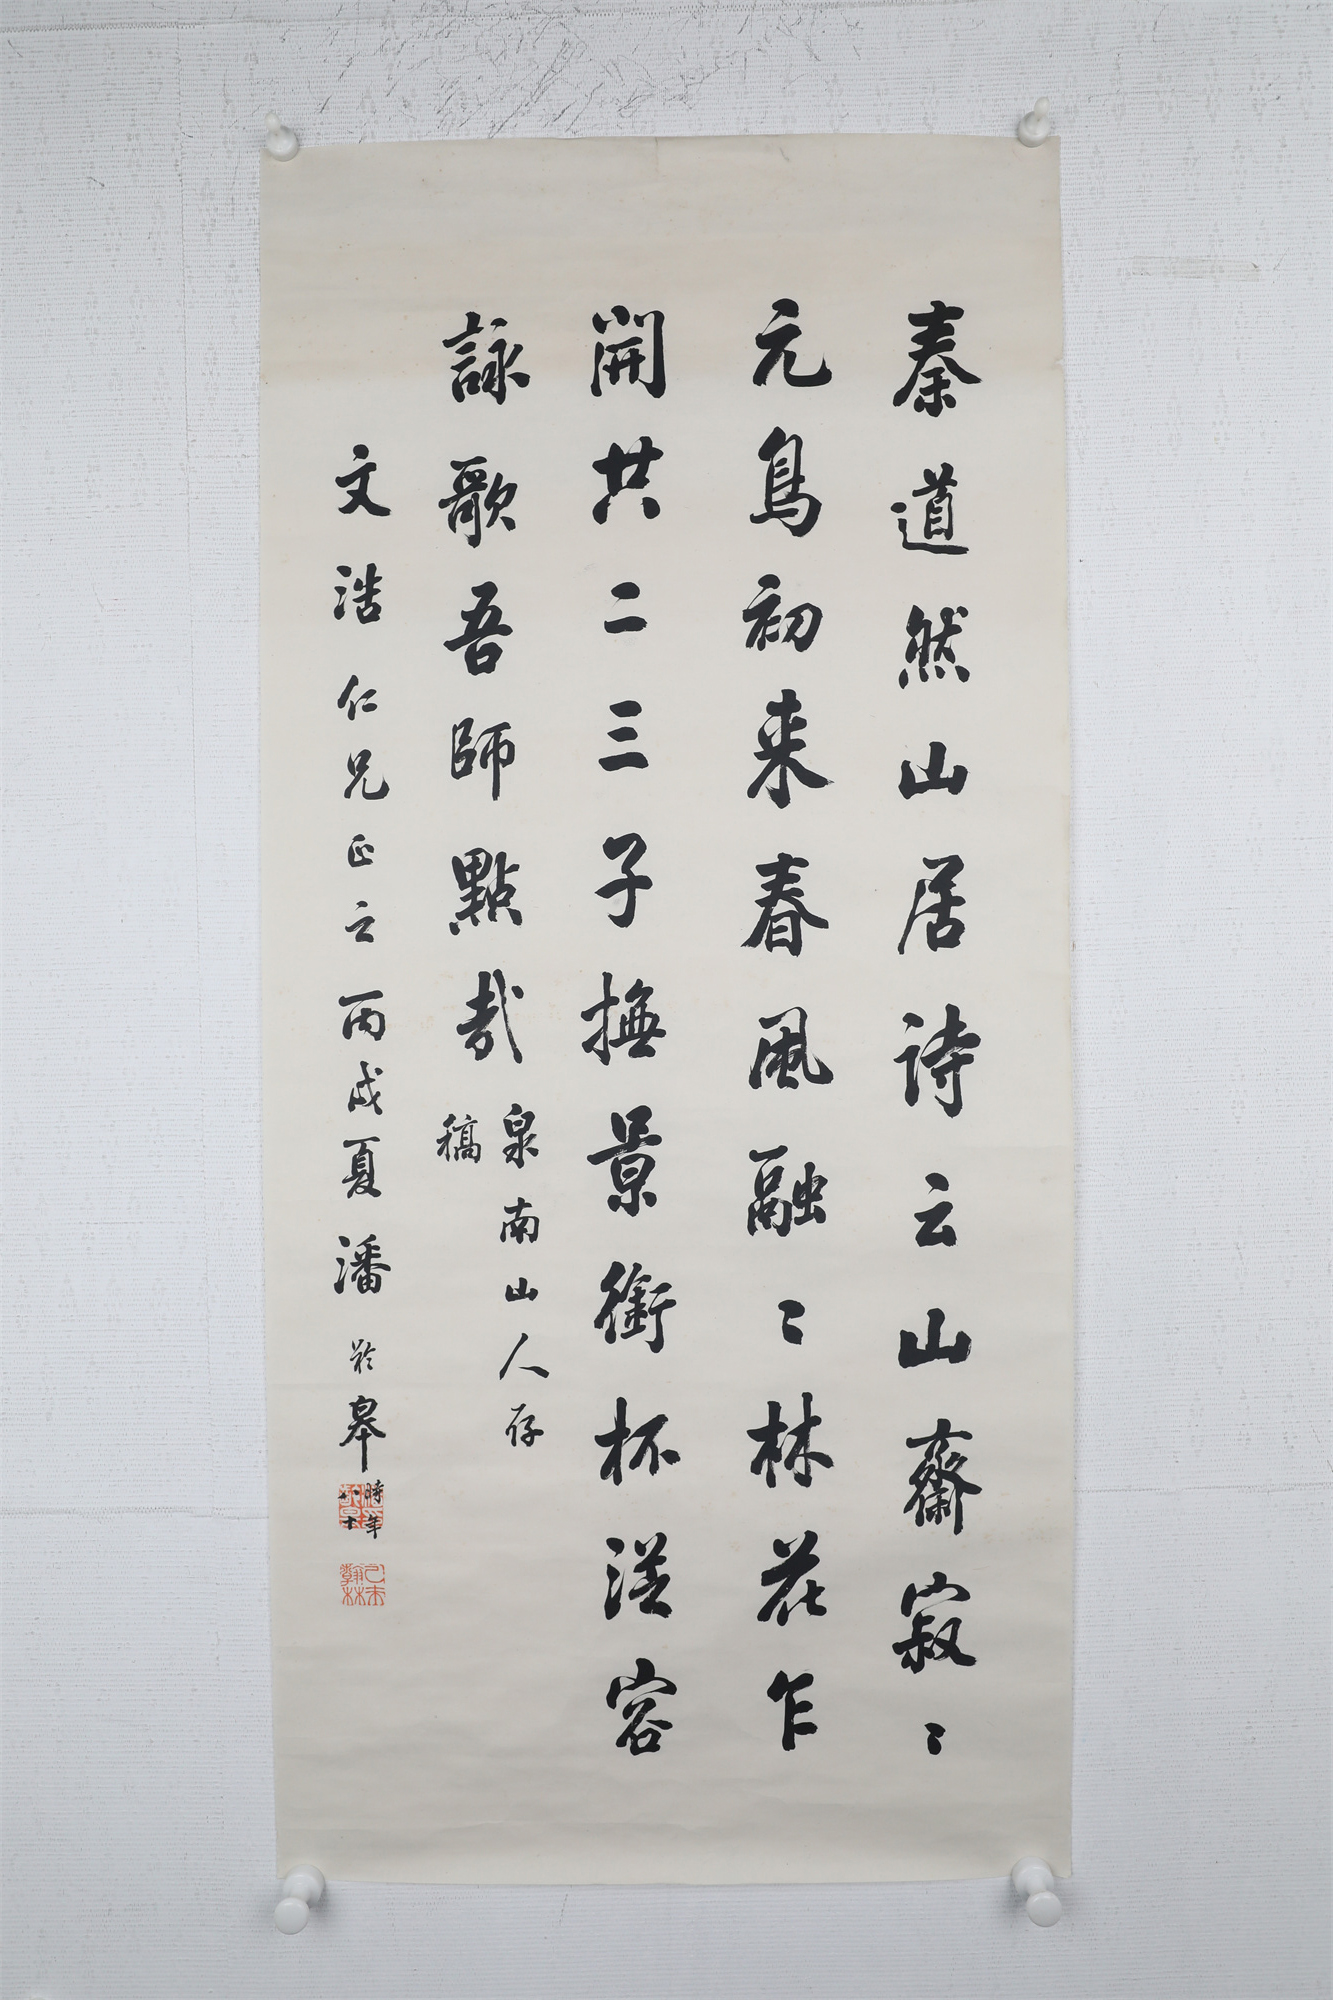 秦道然山居诗云山齋寂〻
元鳥初来春風融〻林花乍
開共二三子撫景銜杯從容
詠歌吾師點哉
泉南山人存
稿
文浩仁兄正之丙戌夏潘齡皋時年
八十